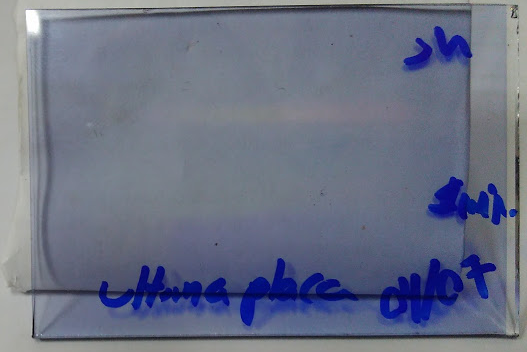 2h
1 min.
ultima placa 04/07